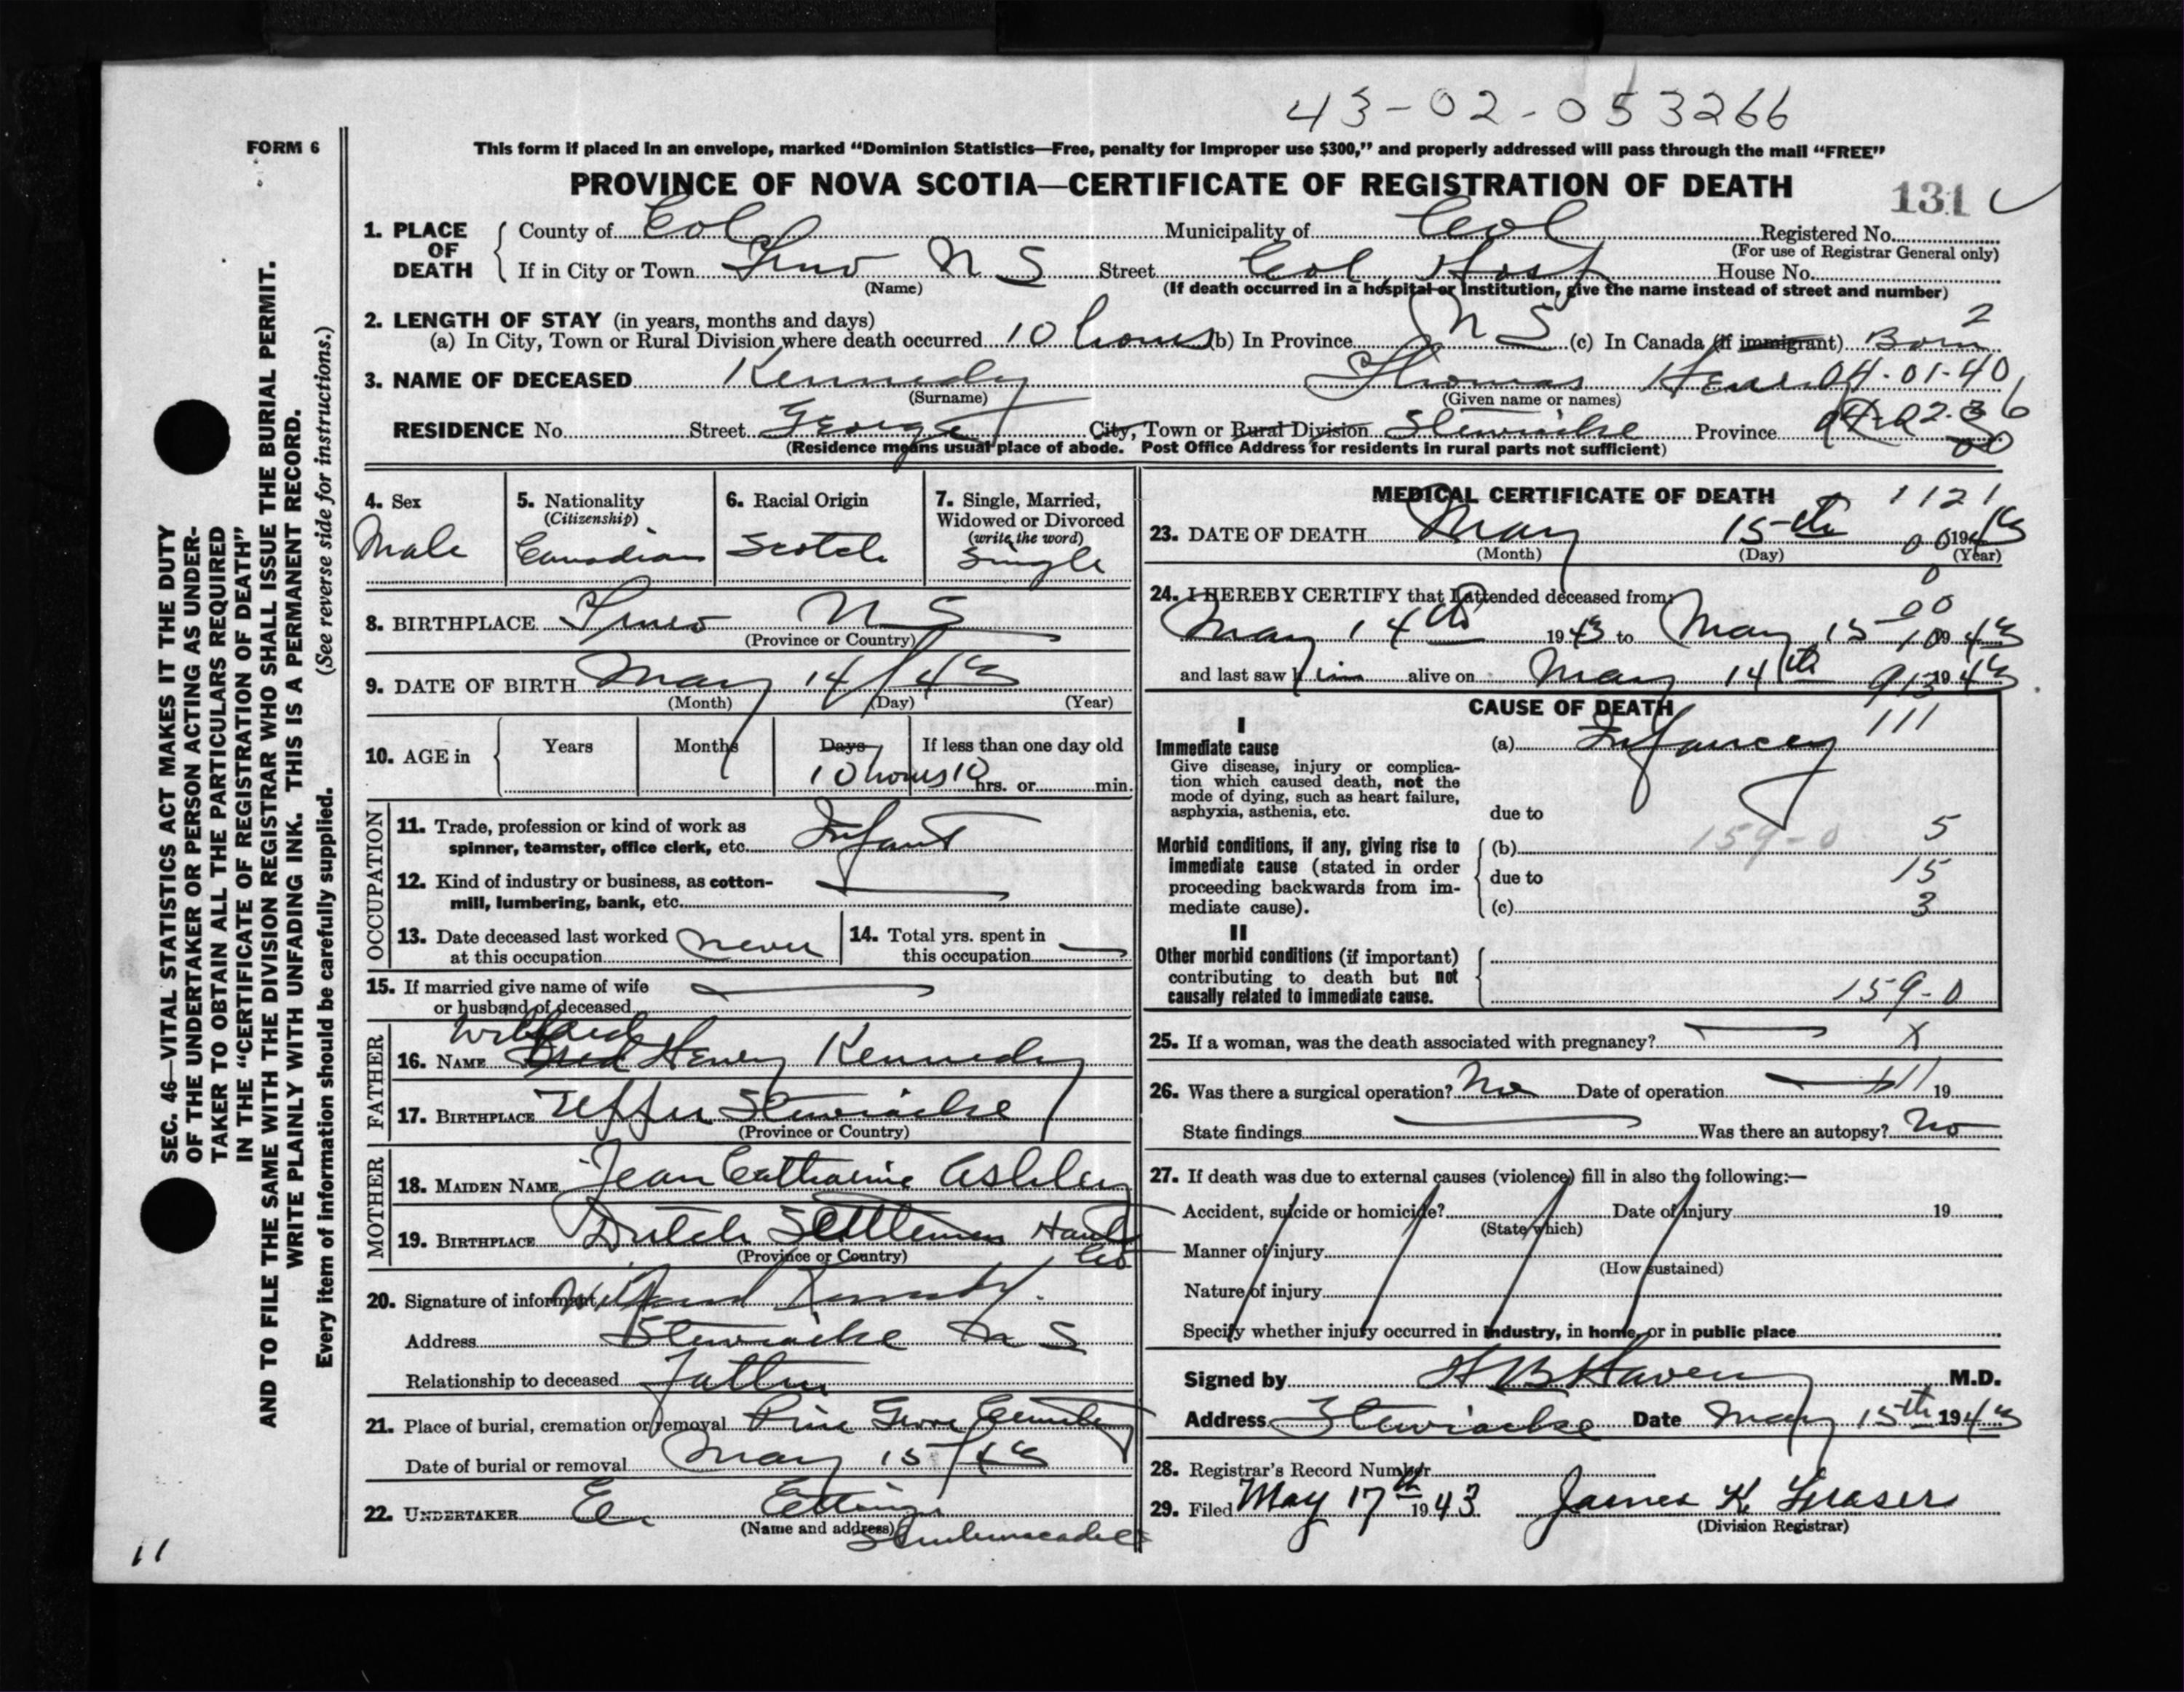 43-02-053266
FORM 6
This form if placed in an envelope, marked “Dominion Statistics—Free, penalty for improper use $300,” and properly addressed will pass through the mail “FREE”
PROVINCE OF NOVA SCOTIA—CERTIFICATE OF REGISTRATION OF DEATH
131
1. PLACE OF DEATH
County of Col Municipality of Col Registered No.
(For use of Registrar General only)
If in City or Town Truro N S Street Col Hosp House No.
(Name) (If death occurred in a hospital or institution, give the name instead of street and number)
2. LENGTH OF STAY (in years, months and days) 2
(a) In City, Town or Rural Division where death occurred 10 hours (b) In Province N S (c) In Canada (if immigrant) Born
3. NAME OF DECEASED Kennedy Thomas Henry 04-01-40
(Surname) (Given name or names)
RESIDENCE No. Street George City, Town or Rural Division Stewiacke Province
(Residence means usual place of abode. Post Office Address for residents in rural parts not sufficient)
4. Sex
Male
5. Nationality
(Citizenship)
Canadian
6. Racial Origin
Scotch
7. Single, Married,
Widowed or Divorced
(write the word)
Single
8. BIRTHPLACE Truro N S
(Province or Country)
9. DATE OF BIRTH May 14/43
(Month) (Day) (Year)
10. AGE in Years Months Days If less than one day old
10 hours 10 hrs. or min.
OCCUPATION
11. Trade, profession or kind of work as
spinner, teamster, office clerk, etc. Infant
12. Kind of industry or business, as cotton-
mill, lumbering, bank, etc.
13. Date deceased last worked
at this occupation never
14. Total yrs. spent in
this occupation
15. If married give name of wife
or husband of deceased
FATHER
Willard
16. NAME Fred Henry Kennedy
17. BIRTHPLACE Upper Stewiacke
(Province or Country)
MOTHER
18. MAIDEN NAME Jean Catharine Ashley
19. BIRTHPLACE Dutch Settlement Hants
(Province or Country) Co
20. Signature of informant Willard Kennedy.
Address Stewiacke N S
Relationship to deceased Father
21. Place of burial, cremation or removal Pine Grove Cemetery
Date of burial or removal May 15/43
22. UNDERTAKER E. Ettinger
(Name and address) Shubenacadie
MEDICAL CERTIFICATE OF DEATH 1121
23. DATE OF DEATH May 15th 1943
(Month) (Day) (Year)
24. I HEREBY CERTIFY that I attended deceased from:
May 14th 1943 to May 15 1943
and last saw him alive on May 14th 1943
CAUSE OF DEATH
111
I
Immediate cause
Give disease, injury or complica-
tion which caused death, not the
mode of dying, such as heart failure,
asphyxia, asthenia, etc.
(a) Infancy
due to
Morbid conditions, if any, giving rise to
immediate cause (stated in order
proceeding backwards from im-
mediate cause).
(b) 159-0 5
due to 15
(c) 3
II
Other morbid conditions (if important)
contributing to death but not
causally related to immediate cause.
159-0
25. If a woman, was the death associated with pregnancy? X
26. Was there a surgical operation? No Date of operation 19
State findings Was there an autopsy? No
27. If death was due to external causes (violence) fill in also the following:—
Accident, suicide or homicide? Date of injury 19
(State which)
Manner of injury
(How sustained)
Nature of injury
Specify whether injury occurred in industry, in home, or in public place
Signed by M.D.
Address Stewiacke Date May 15th 1943
28. Registrar's Record Number
29. Filed May 17th 1943 James K. Fraser
(Division Registrar)
SEC. 46—VITAL STATISTICS ACT MAKES IT THE DUTY
OF THE UNDERTAKER OR PERSON ACTING AS UNDER-
TAKER TO OBTAIN ALL THE PARTICULARS REQUIRED
IN THE “CERTIFICATE OF REGISTRATION OF DEATH”
AND TO FILE THE SAME WITH THE DIVISION REGISTRAR WHO SHALL ISSUE THE BURIAL PERMIT.
WRITE PLAINLY WITH UNFADING INK. THIS IS A PERMANENT RECORD.
Every item of information should be carefully supplied. (See reverse side for instructions.)
11